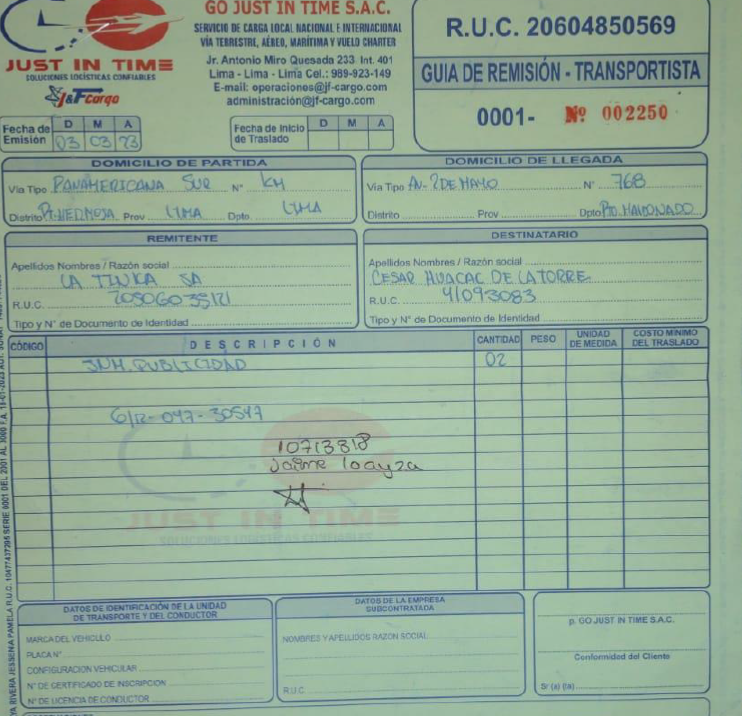 GO JUST IN TIME S.A.C.
SERVICIO DE CARGA LOCAL NACIONAL E INTERNACIONAL
VÍA TERRESTRE, AÉREO, MARÍTIMA Y VUELO CHARTER
Jr. Antonio Miro Quesada 233 Int. 401
Lima - Lima - Lima Cel.: 989-923-149
E-mail: operaciones@jf-cargo.com
administración@jf-cargo.com
JUST IN TIME
SOLUCIONES LOGÍSTICAS CONFIABLES
J&F Cargo
R.U.C. 20604850569
GUIA DE REMISIÓN - TRANSPORTISTA
0001- Nº 002250
Fecha de Emisión D M A 03 03 23
Fecha de Inicio de Traslado D M A
DOMICILIO DE PARTIDA
Via Tipo PANAMERICANA SUR N° KM
Distrito Pt. HERMOSA Prov LIMA Dpto LIMA
DOMICILIO DE LLEGADA
Via Tipo AV- 2 DE MAYO N° 768
Distrito Prov Dpto PTO. MALDONADO
REMITENTE
Apellidos Nombres / Razón social
LA TINKA SA
R.U.C. 20506035121
Tipo y N° de Documento de Identidad
DESTINATARIO
Apellidos Nombres / Razón social
CESAR HUACAC DE LA TORRE
R.U.C. 41093083
Tipo y N° de Documento de Identidad
CÓDIGO DESCRIPCIÓN CANTIDAD PESO UNIDAD DE MEDIDA COSTO MINIMO DEL TRASLADO
PUBLICIDAD 02
G/R-047-30547
10713818
Jaime loayza
JUST IN TIME
SOLUCIONES LOGÍSTICAS CONFIABLES
DATOS DE IDENTIFICACIÓN DE LA UNIDAD DE TRANSPORTE Y DEL CONDUCTOR
MARCA DEL VEHICULO
PLACA N°
CONFIGURACION VEHICULAR
N° DE CERTIFICADO DE INSCRIPCION
N° DE LICENCIA DE CONDUCTOR
DATOS DE LA EMPRESA SUBCONTRATADA
NOMBRES Y APELLIDOS RAZON SOCIAL
R.U.C.
p. GO JUST IN TIME S.A.C.
Conformidad del Cliente
Sr (a) (ta)